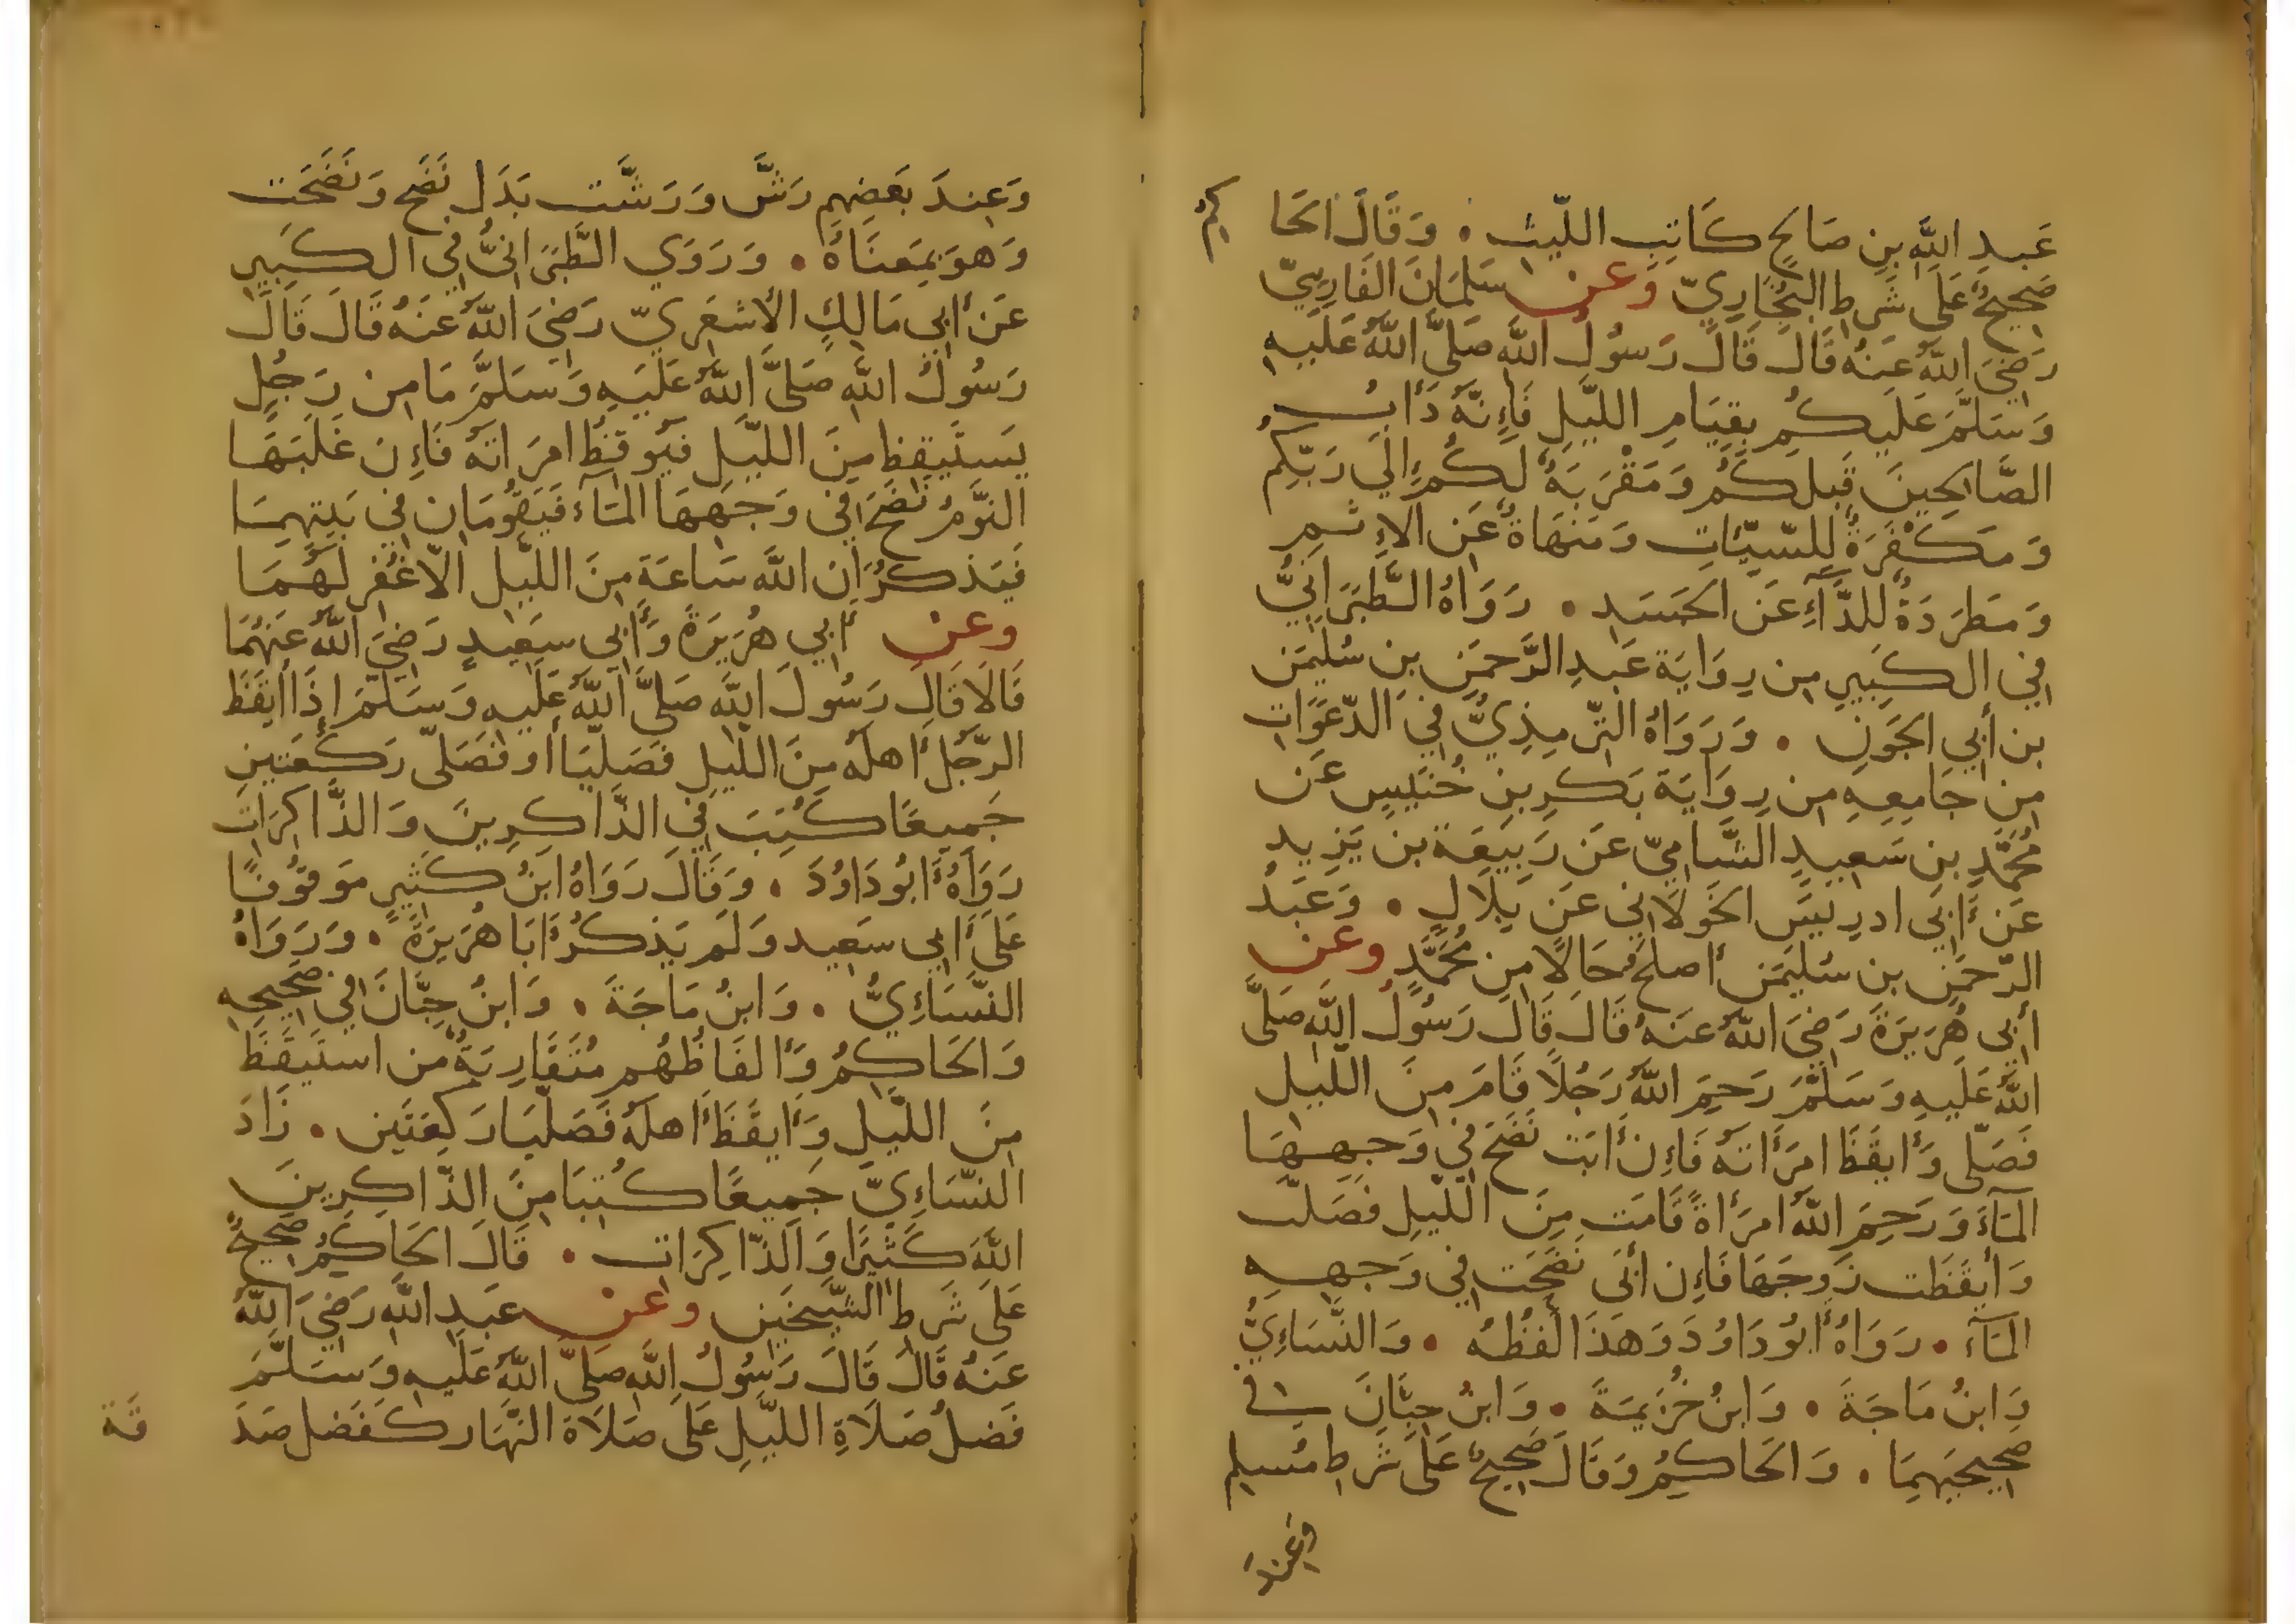 عَبدِ اللَّهِ بنِ صَالحٍ كَاتِبِ اللّيث . وَقَالَ الحَا كِمُ
صَحِيحٌ عَلَى شَرطِ البُخَارِيّ وَعن سَلمَانَ الفَارِسِيّ
رَضِيَ اللَّهُ عَنهُ قَالَ قَالَ رَسُولُ اللَّه صَلَّى اللَّهُ عَلَيهِ
وَسَلَّمَ عَلَيكُم بِقِيَامِ اللَّيلِ فَإِنَّهُ دَأبُ
الصَّالحِينَ قَبلَكُم وَمَقْرَبَةٌ لَكُم إِلَى رَبّكِمُ
وَمَكْفَرَةٌ لِلسّيّئَاتِ وَمَنهَاةٌ عَنِ الإِثمِ
وَمَطرَدَةٌ لِلدَّآءِ عَنِ الجَسَدِ . رَوَاهُ الطَّبَرَانِيُّ
فِي الكَبِيرِ مِن رِوَايَة عَبدِ الرَّحمَنِ بنِ سُلَيمَن
بن أَبِي الجَونِ . وَرَوَاهُ التّرمِذِيُّ فِي الدّعَوَاتِ
مِن جَامِعِهِ مِن رِوَايَة بَكرِ بنِ خُنَيسٍ عَن
مُحَمَّدِ بنِ سَعِيدٍ الشَّامِيّ عَن رَبِيعَة بن يَزِيد
عَن أَبِي ادرِيسَ الخَولَانِي عَن بِلَالٍ . وَعَبدُ
الرّحمَنِ بن سُلَيمَن أصلَح حَالًا مِن مُحَمَّدٍ وعن
أَبِي هُرَيرَةَ رَضِيَ اللَّهُ عَنهُ قَالَ قَالَ رَسُولُ اللَّهِ صَلَّى
اللَّهُ عَلَيهِ وَسَلَّمَ رَحِمَ اللَّهُ رَجُلًا قَامَ مِنَ اللَّيل
فَصَلّى وَأَيقَظَ امرَأَتَهُ فَإِن أَبَت نَضَحَ فِي وَجهِهَا
المَآءَ وَرَحِمَ اللَّهُ امرَأَةً قَامَت مِنَ اللَّيلِ فَصَلّت
وَأَيقَظَت زَوجَهَا فَإِن أَبَى نَضَحَت فِي وَجهِهِ
المَآءَ . رَوَاهُ أَبُو دَاوُدَ وَهَذَا لَفظُهُ . وَالنَّسَاءِيُّ
وَابنُ مَاجَةَ . وَابنُ خُزَيمَةَ . وَابنُ حِبَّانَ فِي
صَحِيحَيهِمَا . وَالحَاكِمُ وَقَالَ صَحِيحٌ عَلَى شَرطِ مُسلِمٍ
وَعِندَ
وَعِندَ بَعضِهِم رَشَّ وَرَشَّت بَدَل نَضَح وَنَضَحَت
وَهوَ بِمَعنَاهُ . وَرَوَي الطَّبَرَانِيُّ فِي الكَبِيرِ
عَن أَبِي مَالِكٍ الأشعَرِيّ رَضِيَ اللَّهُ عَنهُ قَالَ قَالَ
رَسُولُ اللَّهِ صَلَّى اللَّهُ عَلَيهِ وَسَلَّمَ مَا مِن رَجُلٍ
يَستَيقِظ مِنَ اللَّيلِ فَيُوقِظُ امرَاتَهُ فَإِن غَلَبَهَا
النَّومُ نَضَحَ فِي وَجهِهَا المَآءَ فَيَقُومَانِ فِي بَيتِهِمَا
فَيَذكُرَانِ اللَّهَ سَاعَةٍ مِنَ اللَّيلِ الّا غُفِر لَهُمَا
وعن أَبِي هُرَيرَةَ وَأَبِي سَعِيدٍ رَضِيَ اللَّهُ عَنهُمَا
قَالَا قَالَ رَسُولَ اللَّهِ صَلَّى اللَّهُ عَلَيهِ وَسَلَّمَ إِذَا أَيقَظَ
الرّجُلُ أَهلَهُ مِنَ اللَّيلِ فَصَلّيَا أَو فَصَلّى رَكعَتَينِ
جَمِيعًا كُتِبَ فِي الذَّاكِرِينَ وَالذَّاكِرَات
رَوَاهُ أَبُو دَاوُدَ . وَقَالَ رَوَاهُ ابنُ كَثِيرٍ مَوقُوفًا
عَلَى أَبِي سَعِيد وَلَم يَذكُر أَبَا هُرَيرَةَ . وَرَوَاهُ
النَّسَاءِيُّ . وَابنُ مَاجَةَ . وَابنُ حِبَّانَ فِي صَحِيحِهِ
وَالحَاكِمُ وَأَلفَاظُهُم مُتَقَارِبَةٌ مَن استَيقَظَ
مِنَ اللَّيلِ وَأَيقَظَ أَهلَهُ فَصَلّيَا رَكعَتَين . زَادَ
النَّسَاءِيّ جَمِيعًا كُتِبَا مِنَ الذّاكِرِينَ
اللَّهَ كَثِيرًا وَالذّاكِرَات . قَالَ الحَاكِمُ صَحِيحٌ
عَلَى شَرطِ الشَّيخَين وعن عَبدِ اللَّهِ رَضِيَ اللَّهُ
عَنهُ قَالَ قَالَ رَسُولُ اللَّهِ صَلَّى اللَّهُ عَلَيهِ وَسَلَّمَ
فَضلُ صَلَاةِ اللَّيلِ عَلَى صَلَاة النَّهَار كَفَضل صَدَ قَة